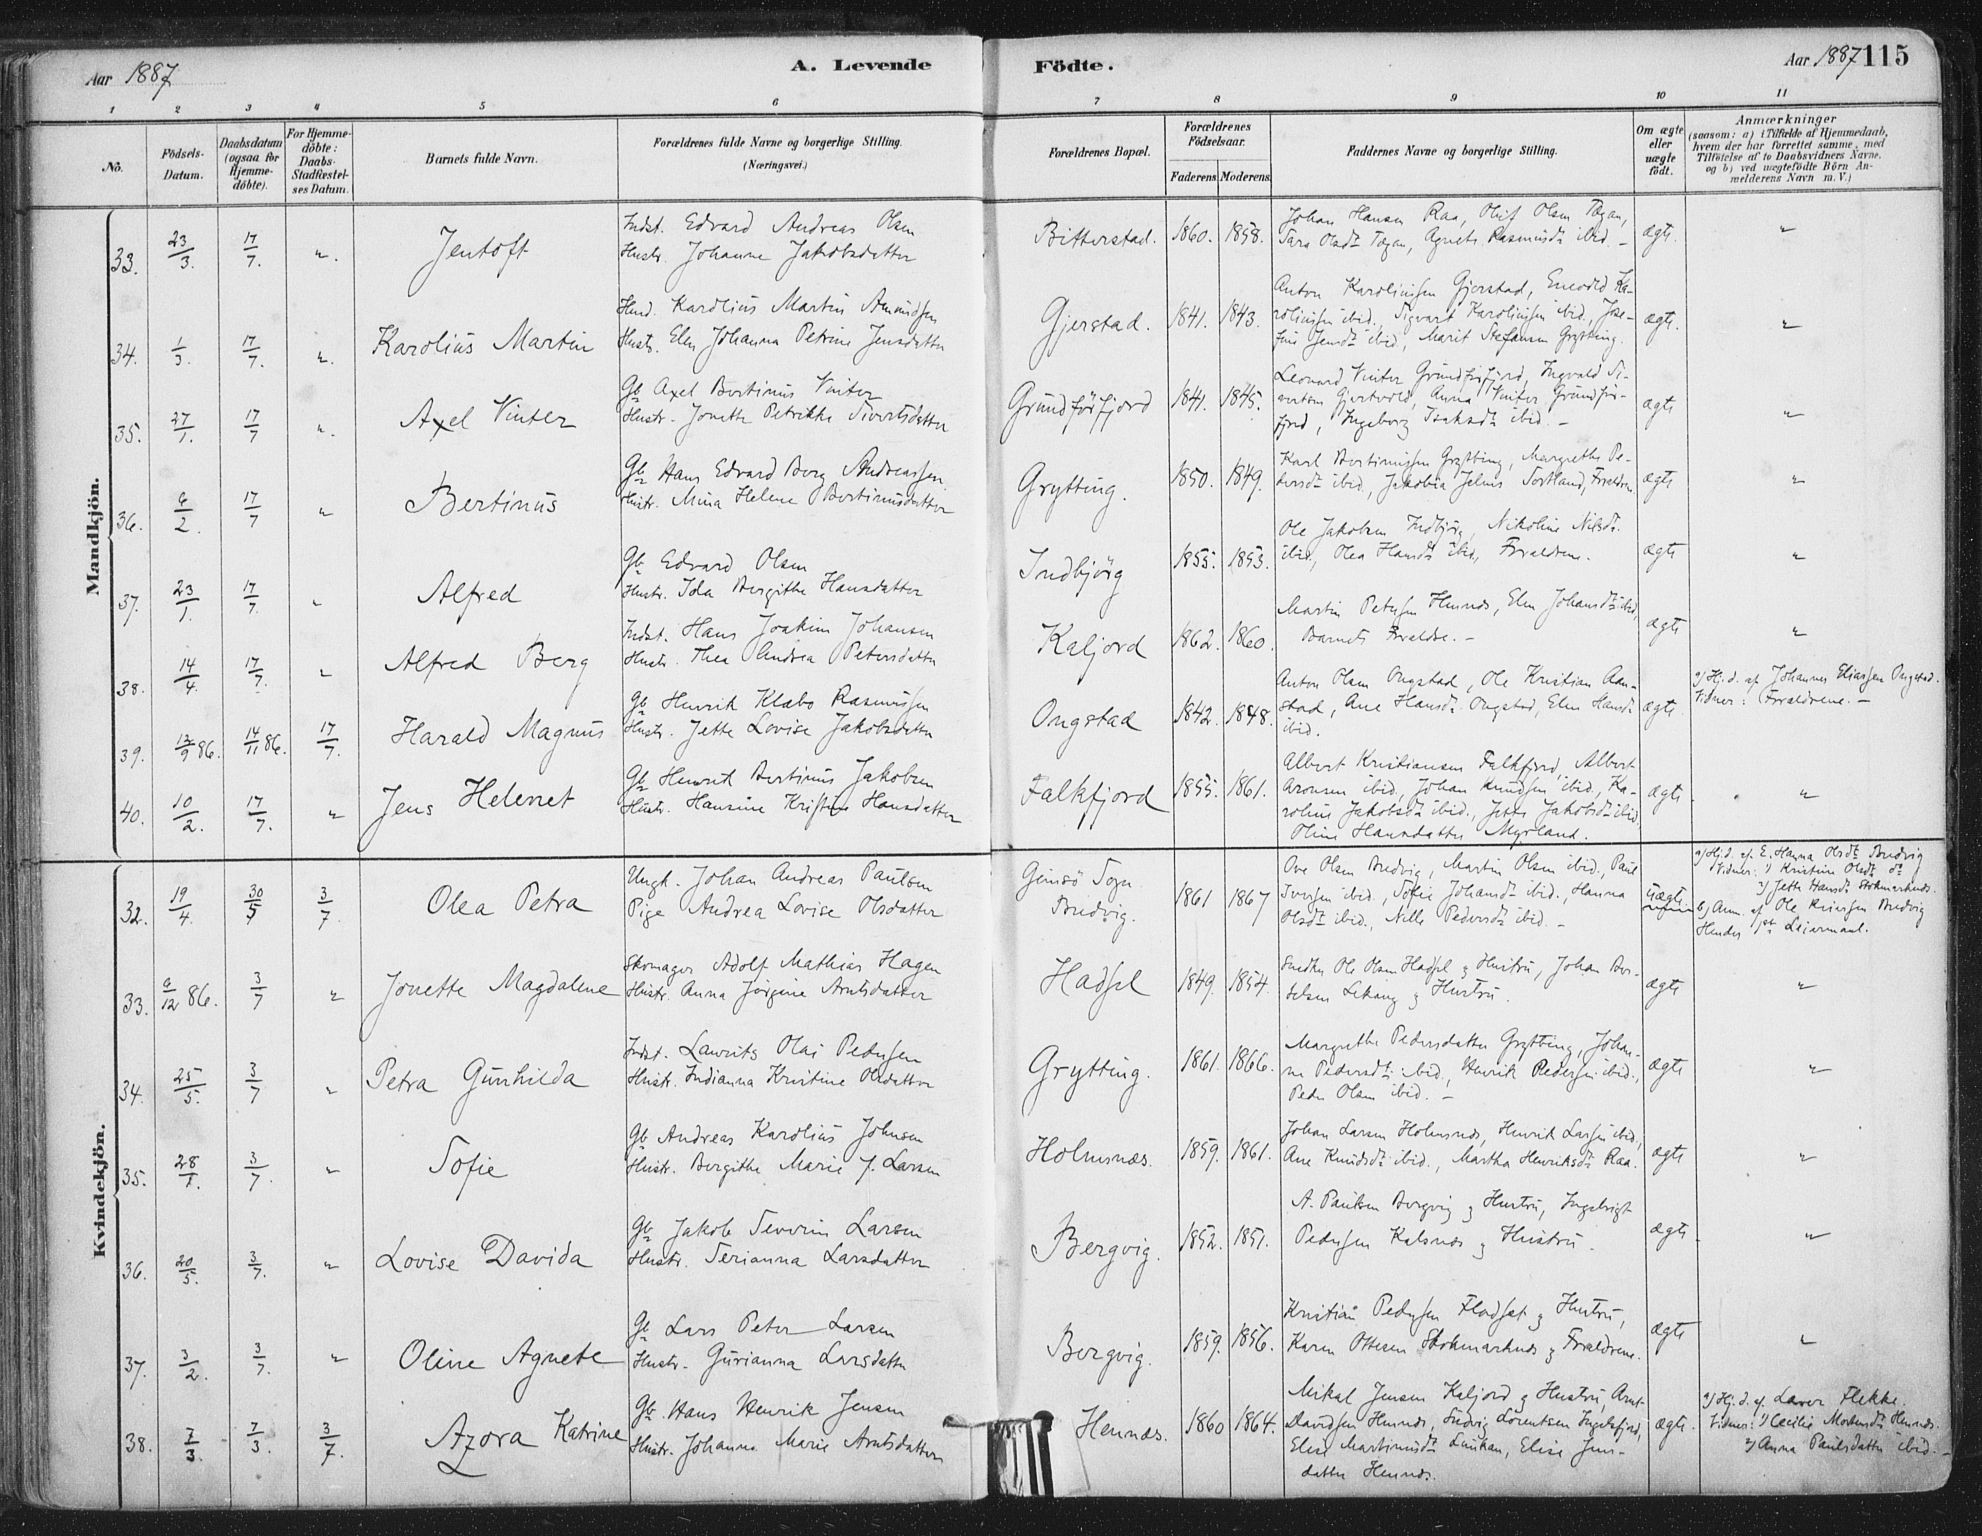 Aar 1887
A. Levende Födte.
Aar 1887 115
1 2 3 4 5 6 7 8 9 10 11
No.
Födsels-Datum.
Daabsdatum (ogsaa for Hjemme-döbte).
For Hjemme-döbte: Daabs-Stadfæstel-ses Datum.
Barnets fulde Navn.
Forældrenes fulde Navne og borgerlige Stilling. (Næringsvei.)
Forældrenes Bopæl.
Forældrenes Födselsaar.
Faderens. Moderens.
Faddernes Navne og borgerlige Stilling.
Om ægte eller uægte födt.
Anmærkninger
(saasom: a) i Tilfælde af Hjemmedaab,
hvem der har forrettet samme, med
Tilföielse af to Daabsvidners Navne,
og b) ved uægtefödte Börn An-
mælderens Navn m. V.)
Mandkjön.
33. 23/3. 17/7. „. Jentoft
Indst. Edvard Andreas Olsen
Hustr. Johanne Jakobsdatter
Bitterstad. 1860. 1858.
Johan Hansen Raa, Oluf Olsen Tegan,
Sara Olsdt Tegan, Agnete Rasmusdt ibid. –
ægte. „
34. 1/3. 17/7. „. Karolius Martin
Karolius Martin Amundsen
Hustr. Elen Johanna Petrine Jensdatter
Gjerstad. 1841. 1843.
Anton Karoliussen Gjerstad, Ka-
roliussen ibid., Sigvart Karoliussen ibid., Jose-
fine Jensdt ibid., Marit Stefansen Grytting.
ægte. „
35. 27/1. 17/7 „. Axel Vinter
Gb Axel Bertinus Vinter
Hustr. Jonette Petrikke Sivertsdatter
Grundførfjord 1841. 1845.
Leonard Vinter Grundførfjord, Ingvald Si-
vertsen, Anna Vinter Grundfør-
fjord, Ingeborg Isaksdt ibid. –
ægte „
36. 6/2. 17/7 „ Bertinus
Gb Hans Edvard Berg Andreassen
Hustr. Mina Helene Bertinusdatter
Grytting. 1850. 1849.
Karl Bertinussen Grytting, Margrethe Pe-
dersdt ibid., Jakobea Jelius Sortland, Forældrene.
ægte „
37. 23/1. 17/7. „ Alfred
Gb Edvard Olsen
Hustr. Ida Bergithe Hansdatter
Indbjörg 1855. 1853.
Ole Jakobsen Indbjörg, Nikoline Nilsdt.
ibid., Olea Hansdt ibid., Forældrene.
ægte „
38. 14/4. 17/7. „ Alfred Berg
Indst. Hans Joakim Johansen
Hustr. Thea Andrea Petersdatter
Kaljord 1862. 1860.
Martin Petersen Hennes, Elen Johansdt ibid,
Barnets Forældre. –
ægte „
39. 12/9 86. 14/11 86. 17/7. Harald Magnus
Gb Henrik Klæbo Rasmussen
Hustr. Jette Lovise Jakobsdatter
Ongstad 1842. 1848.
Anton Olsen Ongstad, Ole Kristian Aan-
stad, Ane Hansdt Ongstad, Elen Hansdt
ibid.
ægte
a) Hj.d. af Johannes Eliassen Ongstad.
Vidner: Forældrene. –
40. 10/2. 17/7. „ Jens Helenet
Gb Henrik Bertinus Jakobsen
Hustr. Hansine Kristine Hansdatter
Falkfjord 1855. 1861.
Albert Kristiansen Falkfjord, Albert
Aronsen ibid., Johan Knudsen ibid., Ka-
roline Jakobsdt ibid., Jette Jakobsdt ibid.
Oline Hansdatter Myrland.
ægte „
Kvindekjön.
32. 19/4. 30/5 3/7. Olea Petra
Ungk. Johan Andreas Paulsen
Pige Andrea Lovise Olsdatter
Gimsö Sogn
Budvig. 1861 1867
Ove Olsen Budvig, Martin Olsen ibid., Paul
Iversen ibid., Sofie Johansdt ibid., Hanna
Olsdt ibid., Nille Pedersdt ibid. –
uægte.
a) Hj.d. af E. Hanna Olsdt Budvig
Vidner: 1) Kristine Olsdt do
2) Jette Hansdt Stokmarknes.
b) Anm. af Ole Budvig
Hendes 1ste Leiermaal.
33. 6/12 86. 3/7 „ Jonette Magdalene
Skomager Adolf Mathias Hagen
Hustr. Anna Jørgine Arntsdatter
Hadsel 1849. 1854.
Snedker Ole Olsen Hadsel & Hustru, Johan
Lekang & Hustru.
ægte „
34. 25/5. 3/7 „ Petra Gunhilda
Indst. Laurits Olai Pedersen
Hustr. Indianna Kristine Olsdatter
Grytting. 1861. 1866.
Margrethe Pedersdatter Grytting, Johan-
ne Pedersdt ibid., Henrik Pedersen ibid.,
Peder Olsen ibid. –
ægte „
35. 28/1. 3/7. „ Sofie
Gb Andreas Karolius Johnsen
Hustr. Bergithe Marie f. Larsen
Holmsnæs. 1859. 1861.
Johan Larsen Holmsnes, Henrik Larsen ibid.,
Ane Knudsdt ibid., Martha Henriksdt Raa.
ægte „
36. 20/5. 3/7. „ Lovise Davida
Gb Jakob Severin Larsen
Hustr. Serianna Larsdatter
Bergvig. 1852. 1851.
A. Paulsen Bergvig & Hustru, Ingebrigt
Pedersen Kalsnes & Hustru.
ægte „
37. 3/2. 3/7. „ Oline Agnete
Gb Lars Peter Larsen
Hustr. Gurianna Larsdatter
Bergvig. 1859. 1856.
Kristian Pedersen Flodset & Hustru,
Karen Ottesen Stokmarknes & Forældrene.
ægte „
38. 7/3. 7/3. 3/7. Azora Katrine
Gb Hans Henrik Jensen
Hustr. Johanna Marie Arntsdatter
Hennæs. 1860 1864.
Mikal Jensen Kaljord & Hustru, Arnt
Davidsen Hennes, Ludvig Lorentsen Ingelsfjord,
Elise Martinusdt, Elise Jens-
datter Hennes.
ægte.
a) Hj.d. af Laver Flekke.
Vidner: 1) Cecilie Mortensdt Hennes.
2) Anna Paulsdatter ibid. –